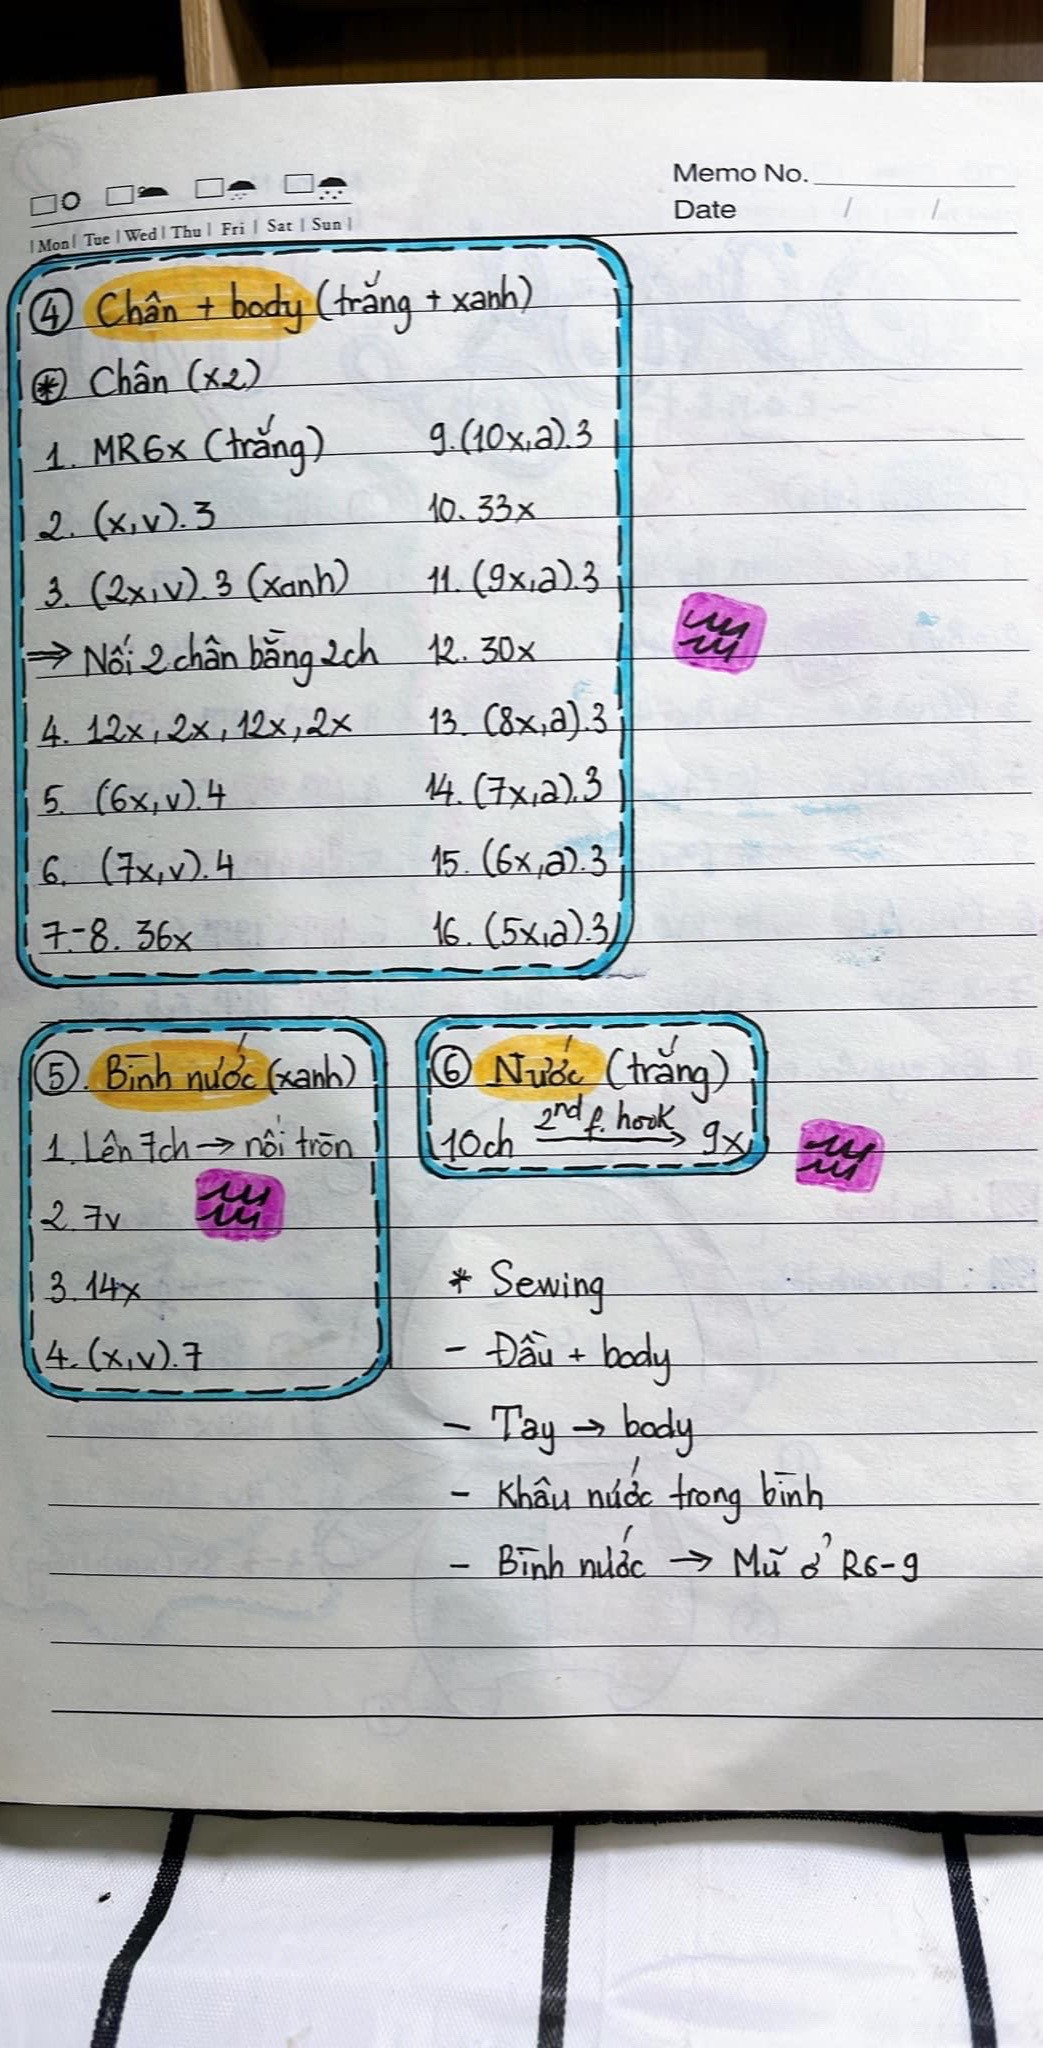 Memo No.
Date / /
Mon Tue Wed Thu Fri Sat Sun
④ Chân + body (trắng + xanh)
* Chân (x2)
1. MR6x (trắng)
2. (x,v).3
3. (2x,v).3 (xanh)
⇒ Nối 2 chân bằng 2ch
4. 12x, 2x, 12x, 2x
5. (6x,v).4
6. (7x,v).4
7.-8. 36x
9.(10x,a).3
10. 33x
11. (9x,a).3
12. 30x
13. (8x,a).3
14. (7x,a).3
15. (6x,a).3
16. (5x,a).3
⑤. Bình nước (xanh)
1. Lên 7ch → nối tròn
2. 7v
3. 14x
4. (x,v).7
⑥ Nước (trắng)
10ch 2nd f. hook → 9x
* Sewing
- Đầu + body
- Tay → body
- Khâu nước trong bình
- Bình nước → Mũ ở R6-9